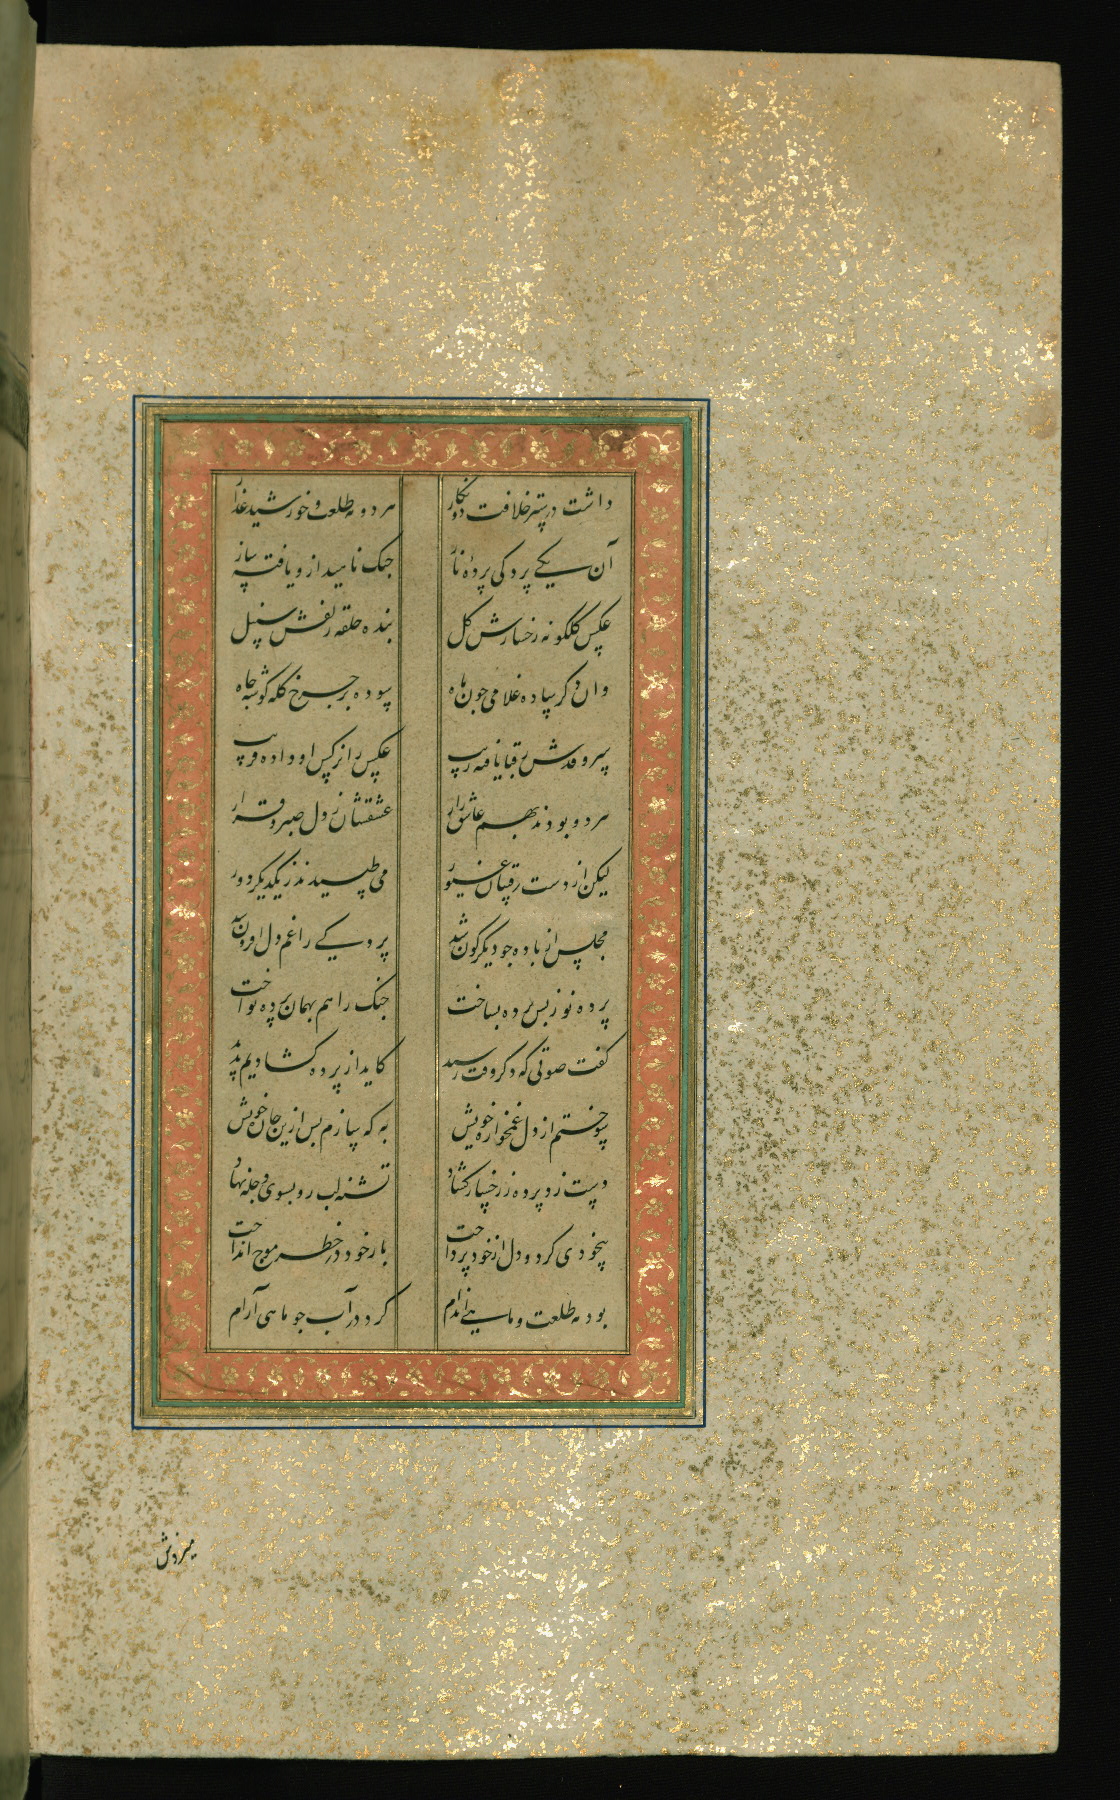 داشت در ستر خلافت دو نگار هر دو مه طلعت و خورشید عذار
آن یکی پردکی پردهٔ ناز جنک ناهید ازو یافته ساز
عکس کلکونه رخسارش کل بنده حلقه زلفش سنبل
وان دکر ساده غلامی جون ماه سوده بر جرخ کله کوشه جاه
سرو قدش ز قبا یافته زیب عکس را نرکس او داده فریب
هر دو بودند بهم عاشق زار عشقشان برده ز دل صبر و قرار
لیکن از دست رقیبان غیور می طپیدند ز یکدیکر دور
مجلس از باده جو دیکرکون شد پردکی را غم دل افزون شد
پرده نو ز پس پرده بساخت جنک را هم بهمان پرده نواخت
کفت صوتی که دکر وقت رسید کاید از پرده کشادیم پدید
سوختم از دل غمخواره خویش به که سازم پس ازین چاره خویش
دست زد پرده ز رخسار کشاد تشنه لب رو بسوی دجله نهاد
بیخودی کرد و دل از خود پرداخت بار خود در خطر موج انداخت
بود مه طلعت و ماهی اندام کرد در آب جو ماهی آرام